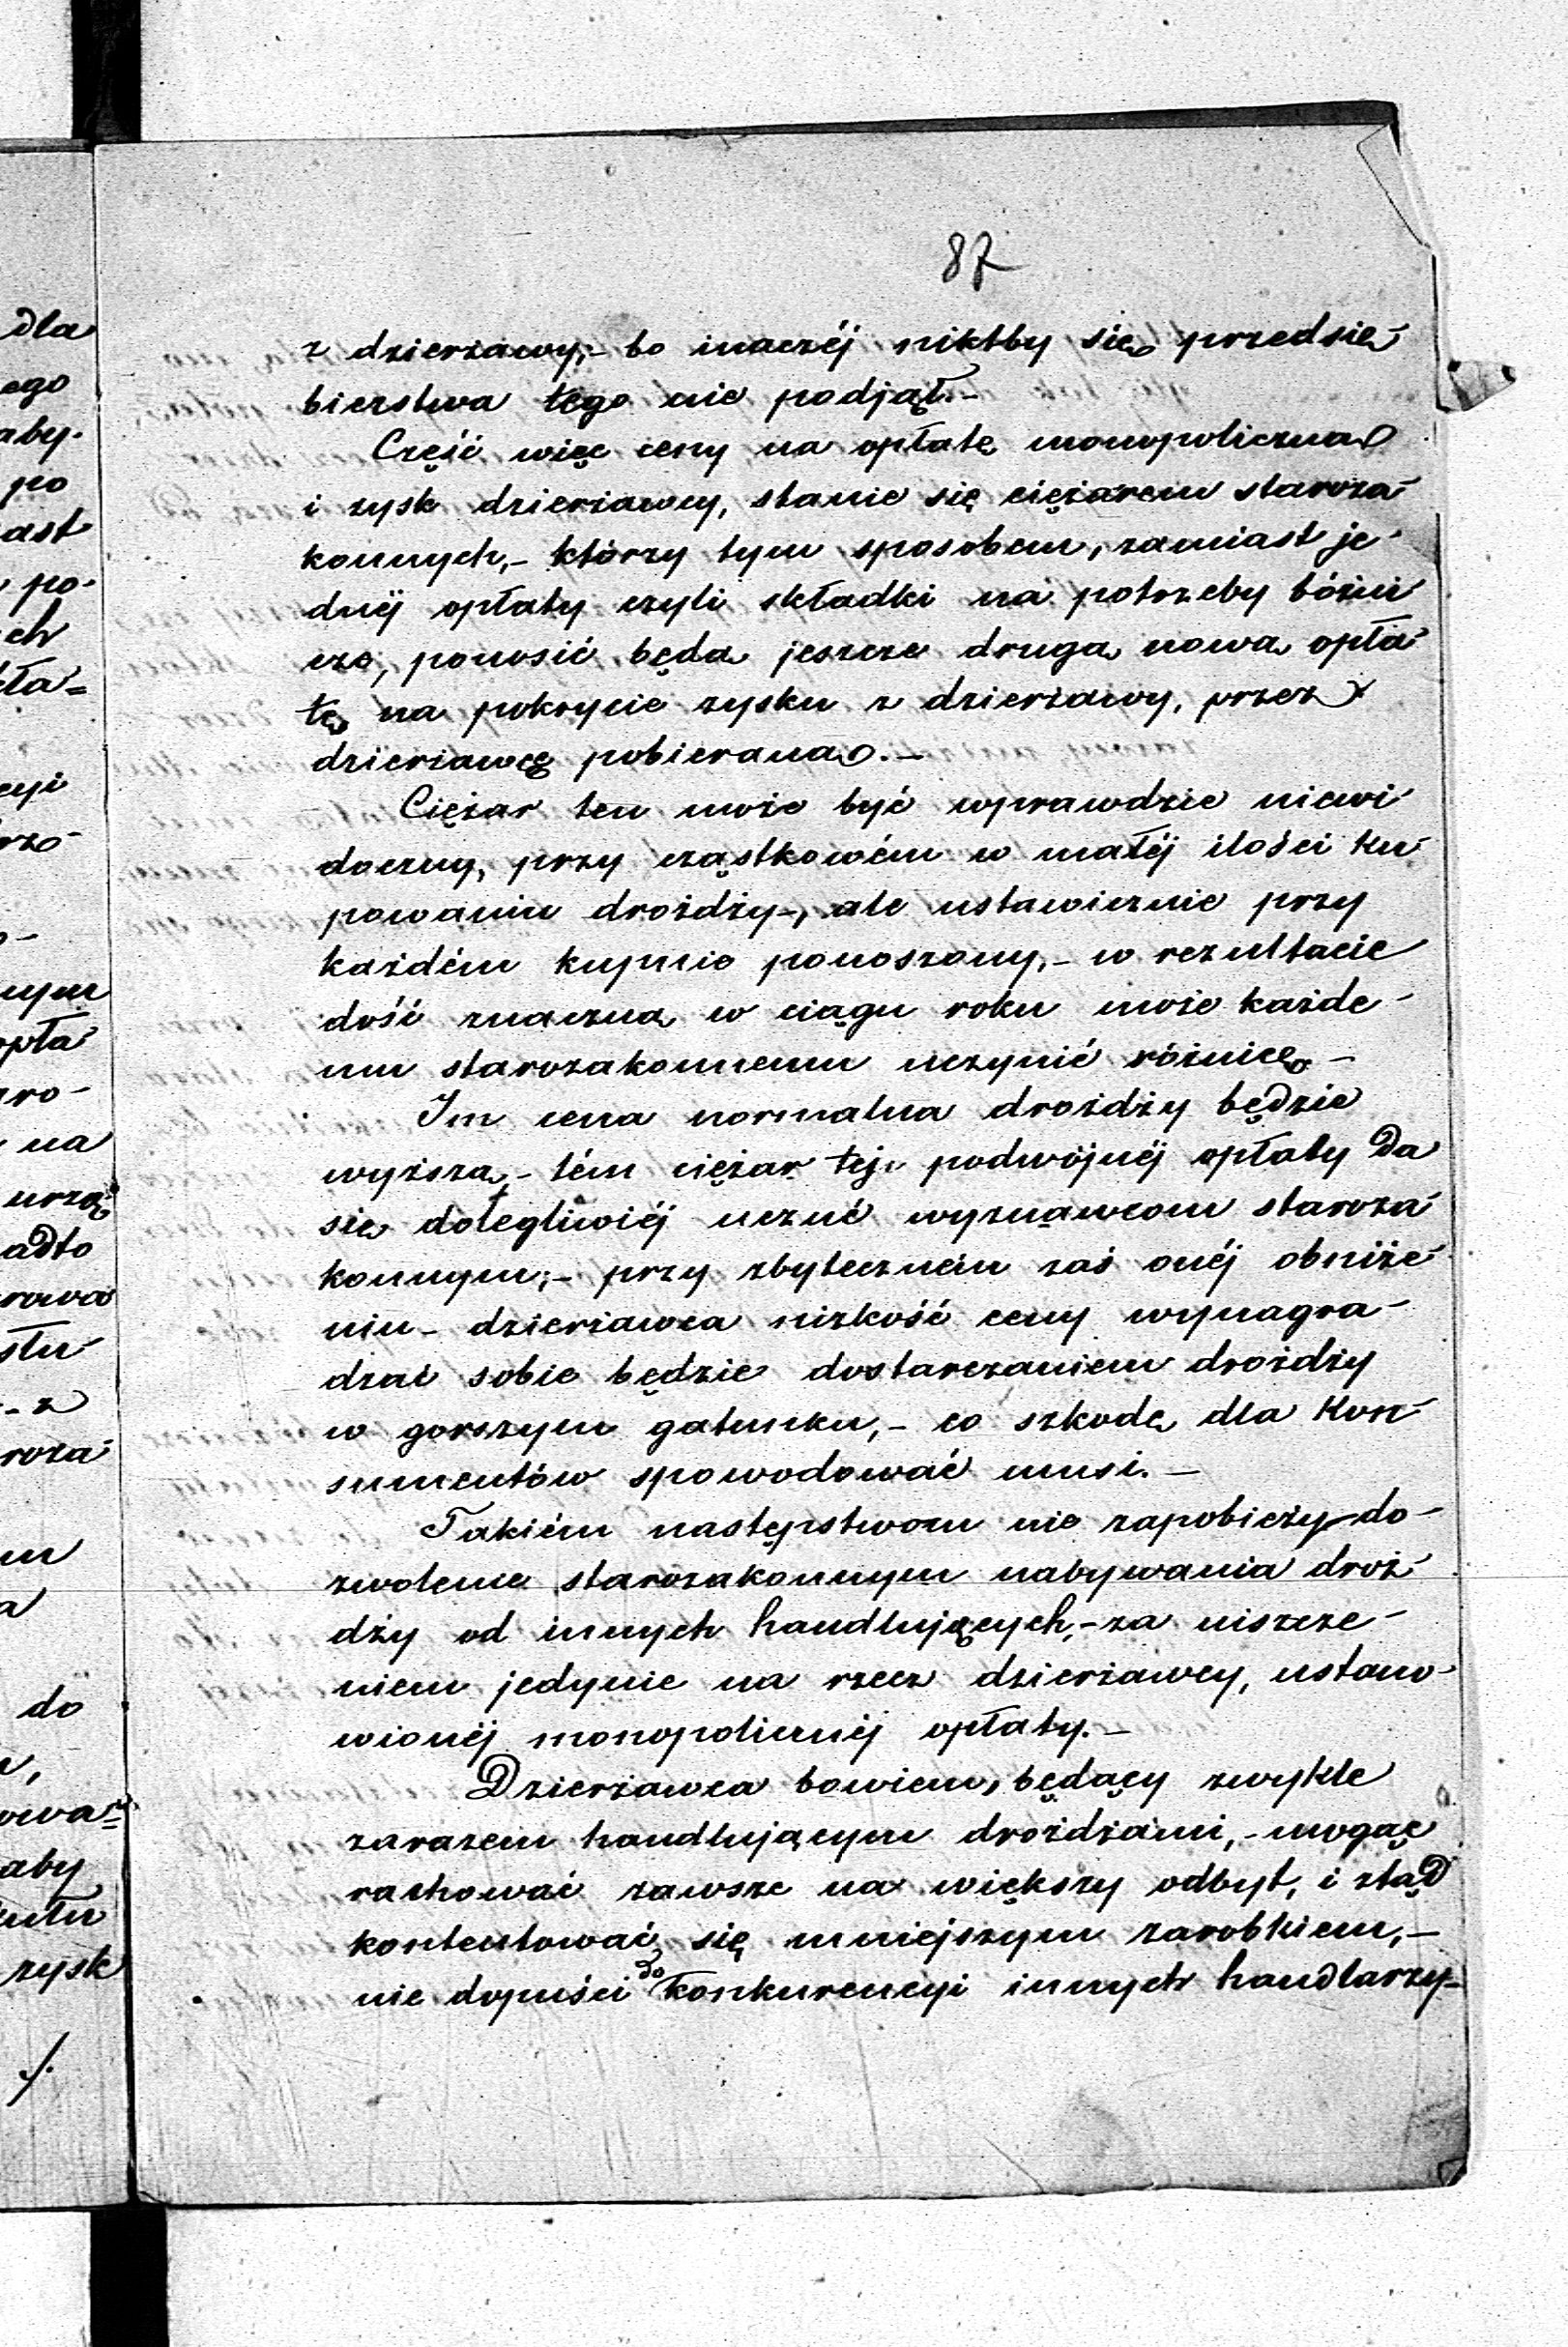 87
dla
ego
aby.
po
ast
po-
ch
cyi
nym
opła
na
adto
do
aby
zysk
z dzierżawy,- bo inaczéj niktby się przedsię-
bierstwa tego nie podjął.-
Część więc ceny na opłatę monopoliczną
i zysk dzierżawcy, stanie się ciężarem staroza-
konnych,- którzy tym sposobem, zamiast je-
dnéj opłaty czyli składki na potrzeby bóżni-
cze, ponosić będą jeszcze drugą nową opła-
tę na pokrycie zysku z dzierżawy, przez
dzierżawcę pobieraną.-
Ciężar ten może być wprawdzie niewi-
doczny, przy cząstkowém w małéj ilości ku-
powaniu drożdży-, ale ustawicznie przy
każdém kupnie ponoszony,- w rezultacie
dość znaczną w ciągu roku może każde-
mu starozakonnemu uczynić różnicę.-
Im cena normalna drożdży będzie
wyższą,- tém ciężar téj podwójnéj opłaty da
się dolegliwiéj uczuć wyznawcom staroza-
konnym;- przy zbyteczném zaś onéj obniże-
niu- dzierżawca nizkość ceny wynagra-
dzać sobie będzie dostarczaniem drożdży
w gorszym gatunku,- co szkodę dla kon-
sumentów spowodować musi.-
Takiém następstwom nie zapobieży do-
zwolenie starozakonnym nabywania droż-
dży od innych handlujących,- za niszcze-
niem jedynie na rzecz dzierżawcy, ustano-
wionéj monopolicznéj opłaty.-
Dzierżawca bowiem, będący zwykle
zarazem handlującym drożdżami,- mogąc
rachować zawsze na większy odbyt, i ztąd
kontentować się mniejszym zarobkiem,-
nie dopuści do konkurencyi innych handlarzy-